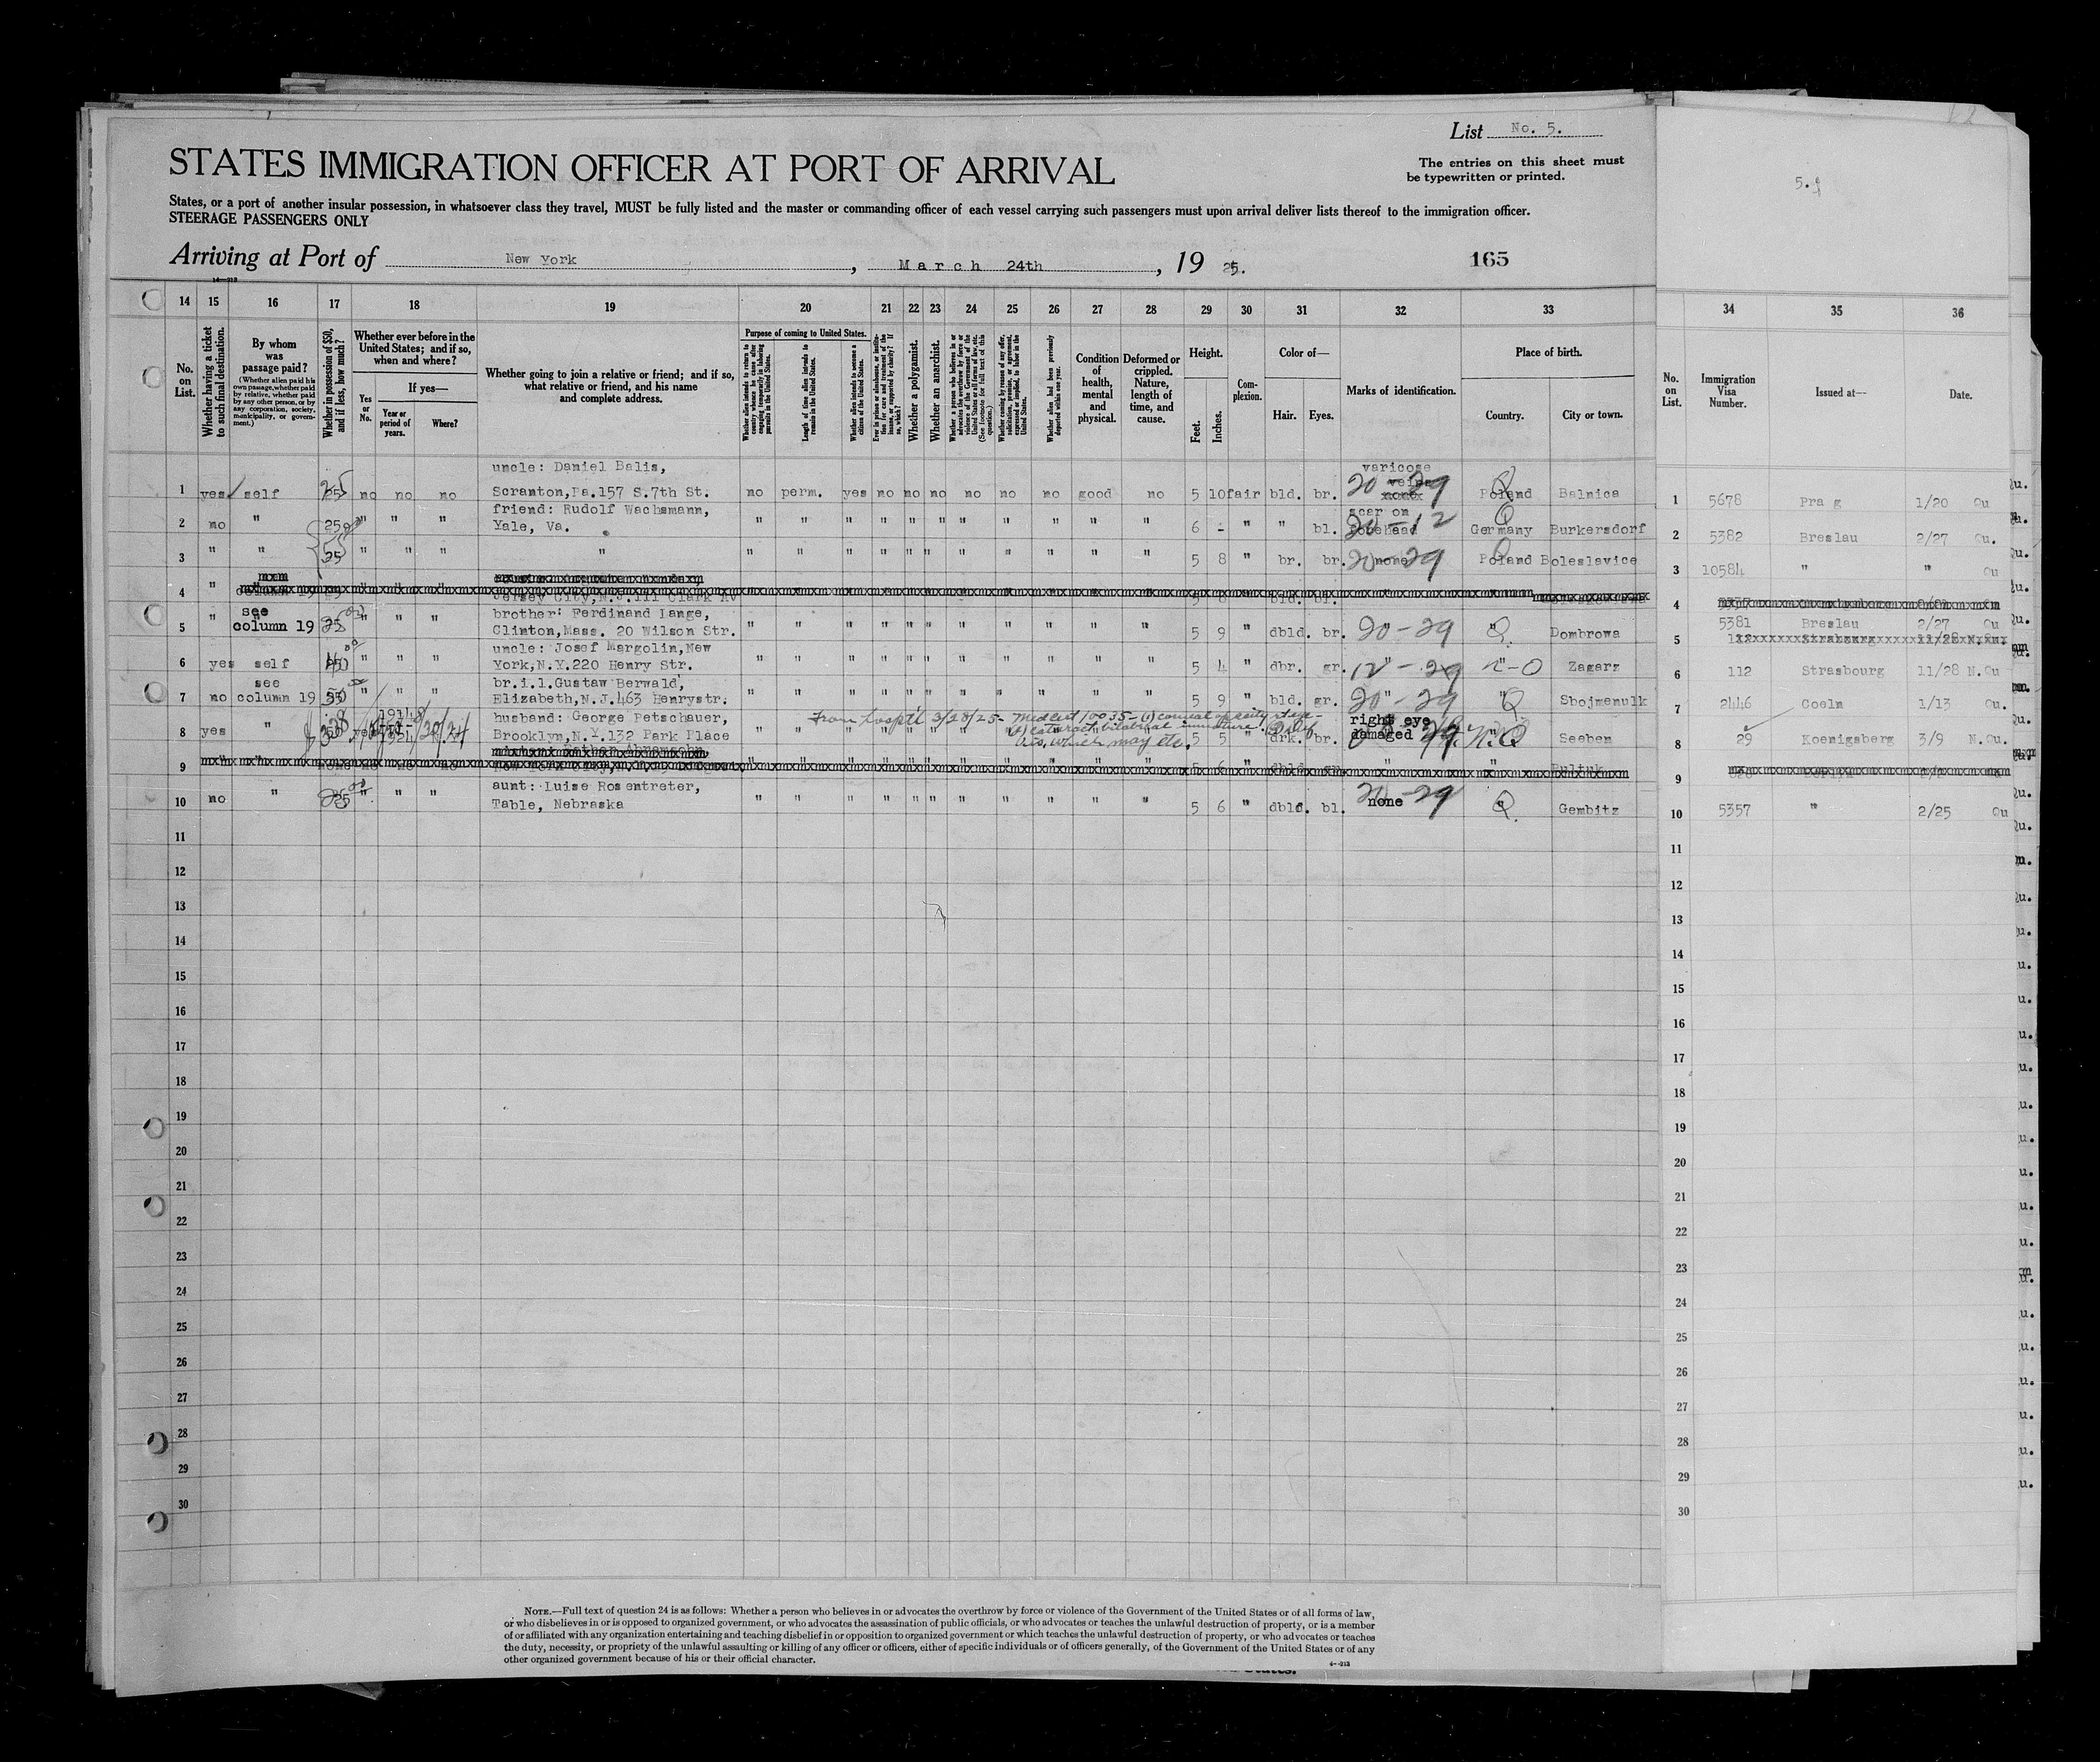 List No. 5.
STATES IMMIGRATION OFFICER AT PORT OF ARRIVAL
The entries on this sheet must
be typewritten or printed.
States, or a port of another insular possession, in whatsoever class they travel, MUST be fully listed and the master or commanding officer of each vessel carrying such passengers must upon arrival deliver lists thereof to the immigration officer.
STEERAGE PASSENGERS ONLY
Arriving at Port of New York, March 24th, 19 25.
165
14 15 16 17 18 19 20 21 22 23 24 25 26 27 28 29 30 31 32 33 34 35 36
No. on List.
Whether having a ticket to such final destination.
By whom was passage paid?
(Whether alien paid his own passage, whether paid by relative, whether paid by any other person, or by any corporation, society, municipality, or government.)
Whether in possession of $50, and if less, how much?
Whether ever before in the United States; and if so, when and where?
Yes or No.
If yes—
Year or period of years.
Where?
Whether going to join a relative or friend; and if so, what relative or friend, and his name and complete address.
Purpose of coming to United States.
Length of time alien intends to remain in the United States.
Whether alien intends to become a citizen of the United States.
Whether a polygamist.
Whether an anarchist.
Condition of health, mental and physical.
Deformed or crippled. Nature, length of time, and cause.
Height.
Feet.
Inches.
Complexion.
Color of—
Hair.
Eyes.
Marks of identification.
Place of birth.
Country.
City or town.
No. on List.
Immigration Visa Number.
Issued at—
Date.
uncle: Daniel Balis, varicose
1 yes self 25 no no no Scranton,Pa.157 S.7th St. no perm. yes no no no no no no good no 5 10 fair bld. br. veins 20-29 Poland Balnica 1 5678 Prag 1/20 Qu
friend: Rudolf Wachsmann, scar on
2 no " 25 " " " Yale, Va. " " " " " " " " " " " 6 - " " bl. forehead 20-12 Germany Burkersdorf 2 5382 Breslau 2/27 Qu.
3 " " 25 " " " " " " " " " " " " " " " 5 8 " br. br. none 20-29 Poland Boleslavice 3 10584 " " Qu
4 " Jersey City,N.J.111 Clark Av 4
see brother: Ferdinand Lange, 5381 Breslau 2/27 Qu
5 " column 19 25 " " " Clinton,Mass. 20 Wilson Str. " " " " " " " " " " " 5 9 " dbld. br. 20-29 " Dombrowa 5
uncle: Josef Margolin,New
6 yes self " " " York,N.Y.220 Henry Str. " " " " " " " " " " " 5 4 " dbr. gr. 12-29 Zagarz 6 112 Strasbourg 11/28 N.Qu
see br.i.l.Gustaw Berwald,
7 no column 19 " " " Elizabeth,N.J.463 Henrystr. " " " " " " " " " " " 5 9 " bld. gr. 20-29 " Sbojmenulk 7 2446 Coeln 1/13 Qu.
husband: George Petschauer, From hosp'tl 3/28/25- Med cert 10035-(1) corneal opacity right eye- right eye
8 yes " Brooklyn,N.Y.132 Park Place (2) cataract bilateral immature 5 5 " drk. br. damaged " Seeben 8 29 Koenigsberg 3/9 N.Qu.
vis, which may etc.
9 9
aunt: Luise Rosentreter,
10 no " 25 " " " Table, Nebraska " " " " " " " " " " " 5 6 " dbld. bl. none 20-29 " Gembitz 10 5357 " 2/25 Qu
11 11
12 12
13 13
14 14
15 15
16 16
17 17
18 18
19 19
20 20
21 21
22 22
23 23
24 24
25 25
26 26
27 27
28 28
29 29
30 30
NOTE.—Full text of question 24 is as follows: Whether a person who believes in or advocates the overthrow by force or violence of the Government of the United States or of all forms of law,
or who disbelieves in or is opposed to organized government, or who advocates the assassination of public officials, or who advocates or teaches the unlawful destruction of property, or is a member
of or affiliated with any organization entertaining and teaching disbelief in or opposition to organized government or which teaches the unlawful destruction of property, or who advocates or teaches
the duty, necessity, or propriety of the unlawful assaulting or killing of any officer or officers, either of specific individuals or of officers generally, of the Government of the United States or of any
other organized government because of his or their official character.